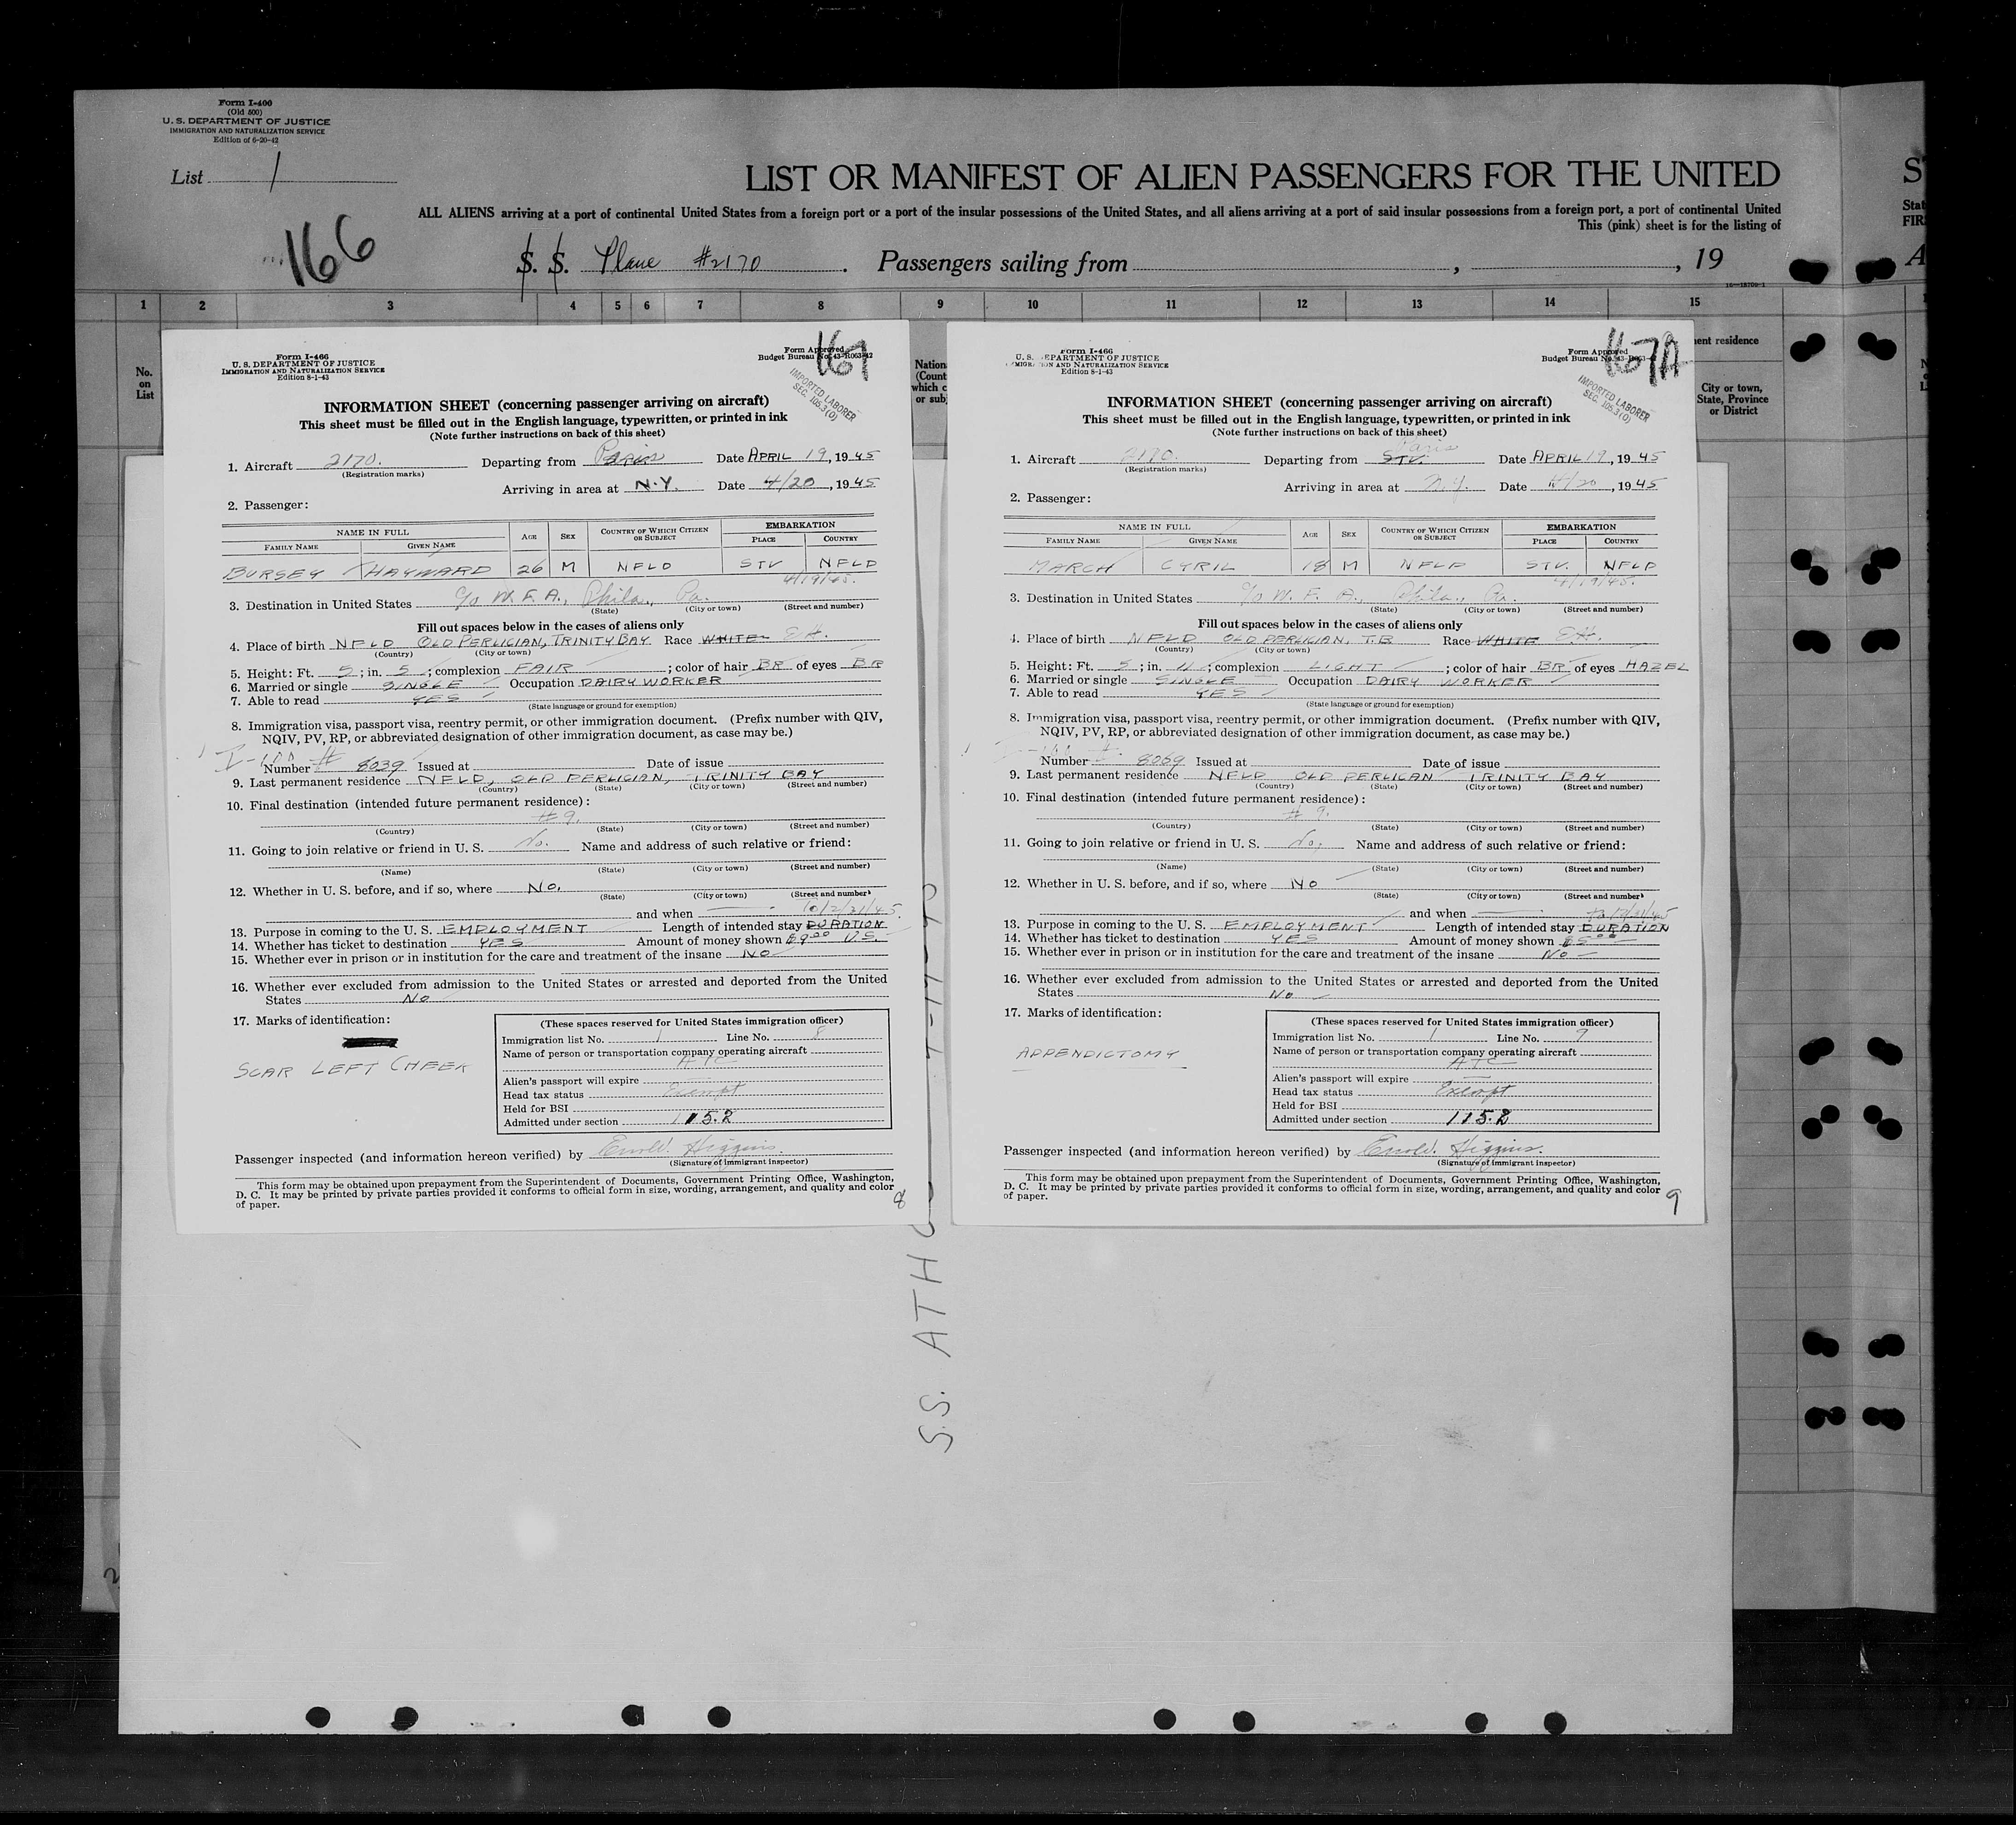 Form I-400
(Old 500)
U. S. DEPARTMENT OF JUSTICE
IMMIGRATION AND NATURALIZATION SERVICE
Edition of 6-20-42
List 1
166
LIST OR MANIFEST OF ALIEN PASSENGERS FOR THE UNITED
ALL ALIENS arriving at a port of continental United States from a foreign port or a port of the insular possessions of the United States, and all aliens arriving at a port of said insular possessions from a foreign port, a port of continental United
This (pink) sheet is for the listing of
S. S. Plane #2170. Passengers sailing from , , 19
16—18700-1
1 2 3 4 5 6 7 8 9 10 11 12 13 14 15
No.
on
List
Nation
(Count
which c
or sub
ent residence
City or town,
State, Province
or District
S
Stat
FIR
A
Form I-466
U. S. DEPARTMENT OF JUSTICE
IMMIGRATION AND NATURALIZATION SERVICE
Edition 8-1-43
Form Approved
Budget Bureau No. 43-R063-42
167
IMPORTED LABORER
SEC. 105.3 (0)
INFORMATION SHEET (concerning passenger arriving on aircraft)
This sheet must be filled out in the English language, typewritten, or printed in ink
(Note further instructions on back of this sheet)
1. Aircraft 2170. Departing from Paris Date APRIL 19, 1945
(Registration marks)
Arriving in area at N.Y. Date 4/20, 1945
2. Passenger:
NAME IN FULL AGE SEX COUNTRY OF WHICH CITIZEN OR SUBJECT EMBARKATION
FAMILY NAME GIVEN NAME PLACE COUNTRY
BURSEY HAYWARD 26 M NFLD STV NFLD
4/19/45.
3. Destination in United States c/o W. F. A., Phila., Pa.
(State) (City or town) (Street and number)
Fill out spaces below in the cases of aliens only
4. Place of birth NFLD OLD PERLICIAN, TRINITY BAY Race WHITE
(Country) (City or town)
5. Height: Ft. 5; in. 5; complexion FAIR; color of hair BR of eyes BR
6. Married or single SINGLE Occupation DAIRY WORKER
7. Able to read YES
(State language or ground for exemption)
8. Immigration visa, passport visa, reentry permit, or other immigration document. (Prefix number with QIV,
NQIV, PV, RP, or abbreviated designation of other immigration document, as case may be.)
I-100 # Number 8039 Issued at Date of issue
9. Last permanent residence NFLD, OLD PERLICIAN, TRINITY BAY
(Country) (State) (City or town) (Street and number)
10. Final destination (intended future permanent residence):
#9.
(Country) (State) (City or town) (Street and number)
11. Going to join relative or friend in U. S. No. Name and address of such relative or friend:
(Name) (State) (City or town) (Street and number)
12. Whether in U. S. before, and if so, where No,
(State) (City or town) (Street and number)
and when
13. Purpose in coming to the U. S. EMPLOYMENT Length of intended stay DURATION
14. Whether has ticket to destination YES Amount of money shown $9.00 U.S.
15. Whether ever in prison or in institution for the care and treatment of the insane NO
16. Whether ever excluded from admission to the United States or arrested and deported from the United
States No
17. Marks of identification:
SCAR LEFT CHEEK
(These spaces reserved for United States immigration officer)
Immigration list No. 1 Line No. 8
Name of person or transportation company operating aircraft
ATC
Alien's passport will expire
Head tax status Exempt
Held for BSI
Admitted under section 115.2
Passenger inspected (and information hereon verified) by Errol Higgins.
(Signature of immigrant inspector)
This form may be obtained upon prepayment from the Superintendent of Documents, Government Printing Office, Washington,
D. C. It may be printed by private parties provided it conforms to official form in size, wording, arrangement, and quality and color
of paper.
8
Form I-466
U. S. DEPARTMENT OF JUSTICE
IMMIGRATION AND NATURALIZATION SERVICE
Edition 8-1-43
Form Approved
Budget Bureau No. 43-R063-42
167A
IMPORTED LABORER
SEC. 105.3 (0)
INFORMATION SHEET (concerning passenger arriving on aircraft)
This sheet must be filled out in the English language, typewritten, or printed in ink
(Note further instructions on back of this sheet)
Paris
1. Aircraft 2170. Departing from STV. Date APRIL 19, 1945
(Registration marks)
Arriving in area at N.Y. Date 4/20, 1945
2. Passenger:
NAME IN FULL AGE SEX COUNTRY OF WHICH CITIZEN OR SUBJECT EMBARKATION
FAMILY NAME GIVEN NAME PLACE COUNTRY
MARCH CYRIL 18 M NFLD STV. NFLD
4/19/45.
3. Destination in United States c/o W. F. A., Phila., Pa.
(State) (City or town) (Street and number)
Fill out spaces below in the cases of aliens only
4. Place of birth NFLD OLD PERLICIAN, T.B Race WHITE
(Country) (City or town)
5. Height: Ft. 5; in. 11; complexion LIGHT; color of hair BR of eyes HAZEL
6. Married or single SINGLE Occupation DAIRY WORKER
7. Able to read YES
(State language or ground for exemption)
8. Immigration visa, passport visa, reentry permit, or other immigration document. (Prefix number with QIV,
NQIV, PV, RP, or abbreviated designation of other immigration document, as case may be.)
Number 8069 Issued at Date of issue
9. Last permanent residence NFLD OLD PERLICAN TRINITY BAY
(Country) (State) (City or town) (Street and number)
10. Final destination (intended future permanent residence):
#9.
(Country) (State) (City or town) (Street and number)
11. Going to join relative or friend in U. S. No, Name and address of such relative or friend:
(Name) (State) (City or town) (Street and number)
12. Whether in U. S. before, and if so, where No
(State) (City or town) (Street and number)
and when
13. Purpose in coming to the U. S. EMPLOYMENT Length of intended stay DURATION
14. Whether has ticket to destination YES Amount of money shown $5.00
15. Whether ever in prison or in institution for the care and treatment of the insane No
16. Whether ever excluded from admission to the United States or arrested and deported from the United
States No
17. Marks of identification:
APPENDICTOMY
(These spaces reserved for United States immigration officer)
Immigration list No. 1 Line No. 9
Name of person or transportation company operating aircraft
ATC
Alien's passport will expire
Head tax status Exempt
Held for BSI
Admitted under section 115.2
Passenger inspected (and information hereon verified) by Errol Higgins.
(Signature of immigrant inspector)
This form may be obtained upon prepayment from the Superintendent of Documents, Government Printing Office, Washington,
D. C. It may be printed by private parties provided it conforms to official form in size, wording, arrangement, and quality and color
of paper.
9
S.S. ATH